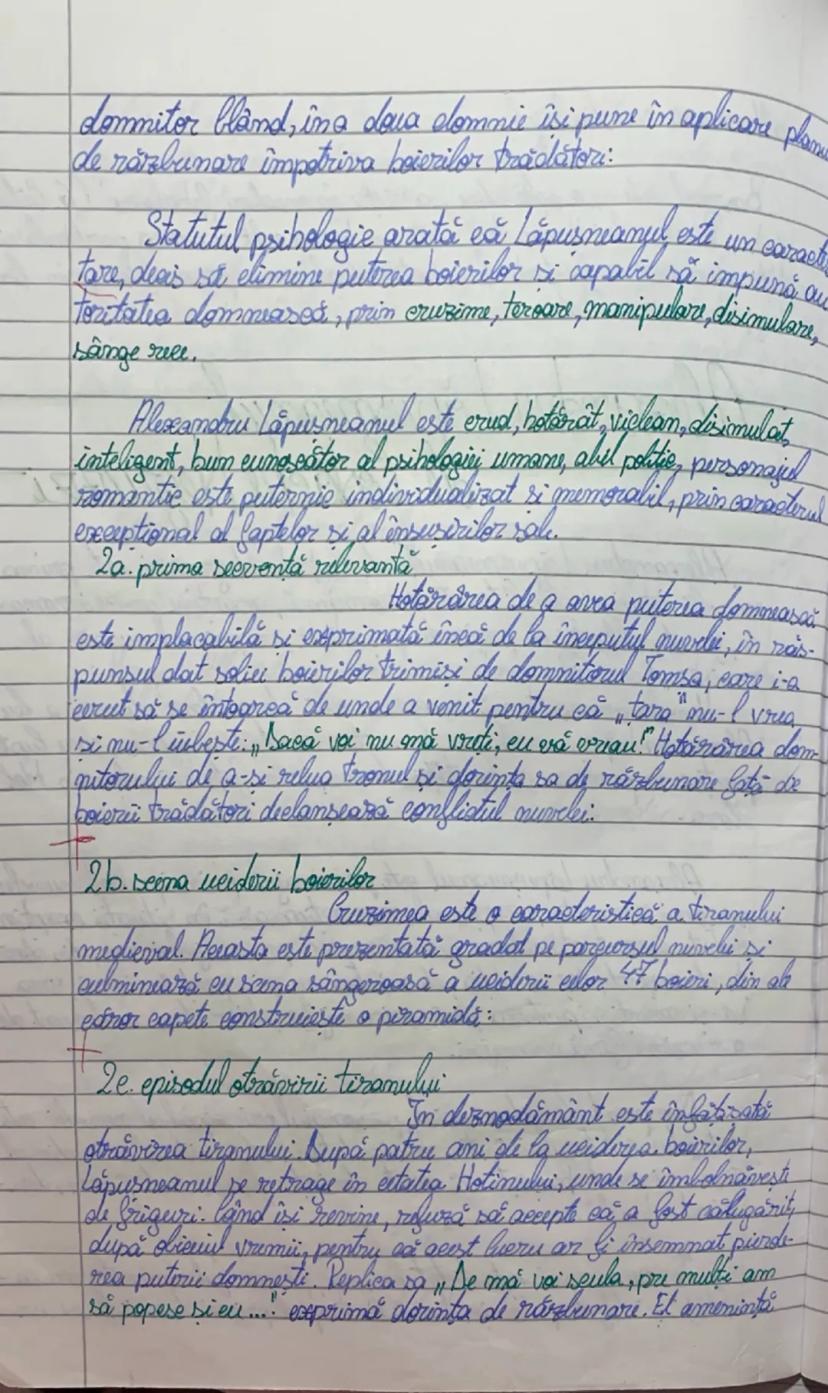 domnitor blând, în a doua domnie își pune în aplicare planu
de răzbunare împotriva boierilor trădători:
Statutul psihologie arată că Lăpușneanul este un caracte
tare, decis să elimine puterea boierilor și capabil să impună au
toritatea domnească, prin cruzime, teroare, manipulare, disimulare,
sânge rece.
Alexandru Lăpușneanul este crud, hotărât, viclean, disimulat,
inteligent, bum cunoscător al psihologiei umane, abil politic, personajul
romantic este puternic individualizat și memorabil, prin caracterul
excepțional al faptelor și al însușirilor sale.
2a. prima secvență relevantă
Hotărârea de a avea puterea domnească
este implacabilă și exprimată încă de la începutul nuvelei, în răs-
punsul dat soliei boierilor trimiși de domnitorul Tomșa, care i-a
cerut să se întoarcă de unde a venit pentru că „țara" nu-l vrea
și nu-l iubește: „Dacă voi nu mă vreți, eu vă vreau!" Hotărârea dom-
nitorului de a-și relua tronul și dorința sa de răzbunare față de
boierii trădători declanșează conflictul nuvelei.
2b. scena uciderii boierilor
Cruzimea este o caracteristică a tiranului
medieval. Aceasta este prezentată gradat pe parcursul nuvelei și
culminează cu scena sângeroasă a uciderii celor 47 boieri, din ale
căror capete construiește o piramidă:
2c. episodul otrăvirii tiranului
În deznodământ este înfățișată
otrăvirea tiranului. După patru ani de la uciderea boierilor,
Lăpușneanul se retrage în cetatea Hotinului, unde se îmbolnăvește
de friguri. Când își revine, refuză să accepte că a fost călugărit,
după obiceiul vremii, pentru că acest lucru ar fi însemnat pierde-
rea puterii domnești. Replica sa „De mă voi scula, pre mulți am
să popesc și eu..." exprimă dorința de răzbunare. El amenință